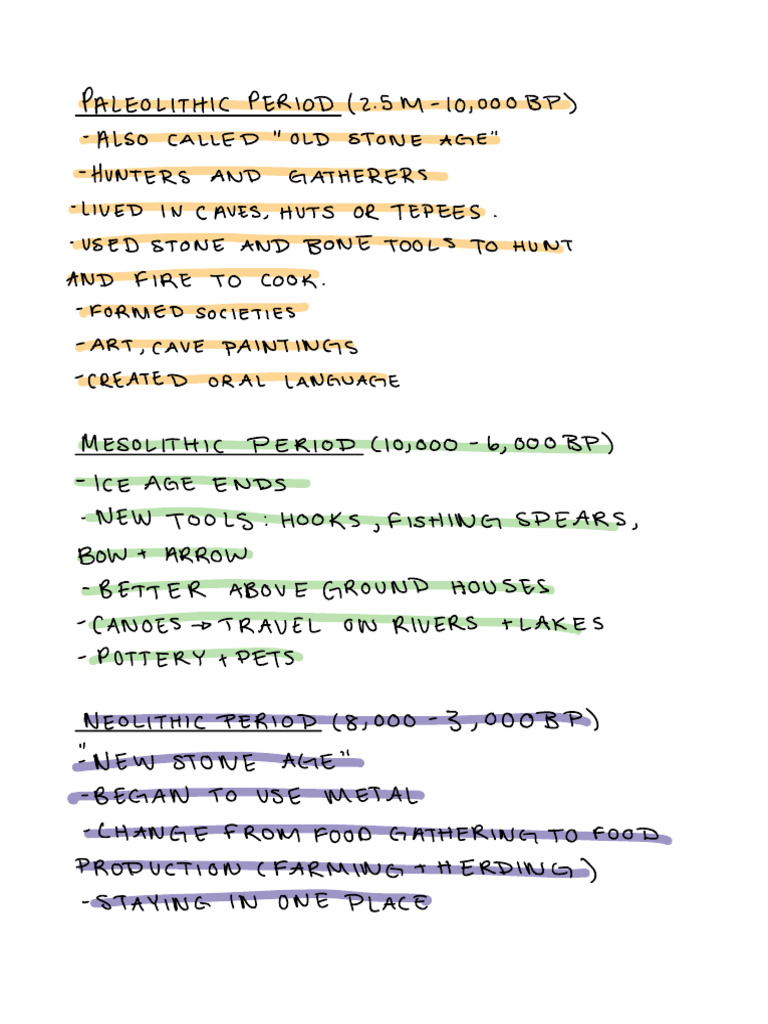 PALEOLITHIC PERIOD (2.5M-10,000BP)
-ALSO CALLED "OLD STONE AGE"
-HUNTERS AND GATHERERS
-LIVED IN CAVES, HUTS OR TEPEES.
-USED STONE AND BONE TOOLS TO HUNT
AND FIRE TO COOK.
-FORMED SOCIETIES
-ART, CAVE PAINTINGS
-CREATED ORAL LANGUAGE
MESOLITHIC PERIOD (10,000-6,000BP)
-ICE AGE ENDS
-NEW TOOLS: HOOKS, FISHING SPEARS,
BOW + ARROW
-BETTER ABOVE GROUND HOUSES
-CANOES → TRAVEL ON RIVERS + LAKES
-POTTERY + PETS
NEOLITHIC PERIOD (8,000-3,000BP)
-"NEW STONE AGE"
-BEGAN TO USE METAL
-CHANGE FROM FOOD GATHERING TO FOOD
PRODUCTION (FARMING + HERDING)
-STAYING IN ONE PLACE